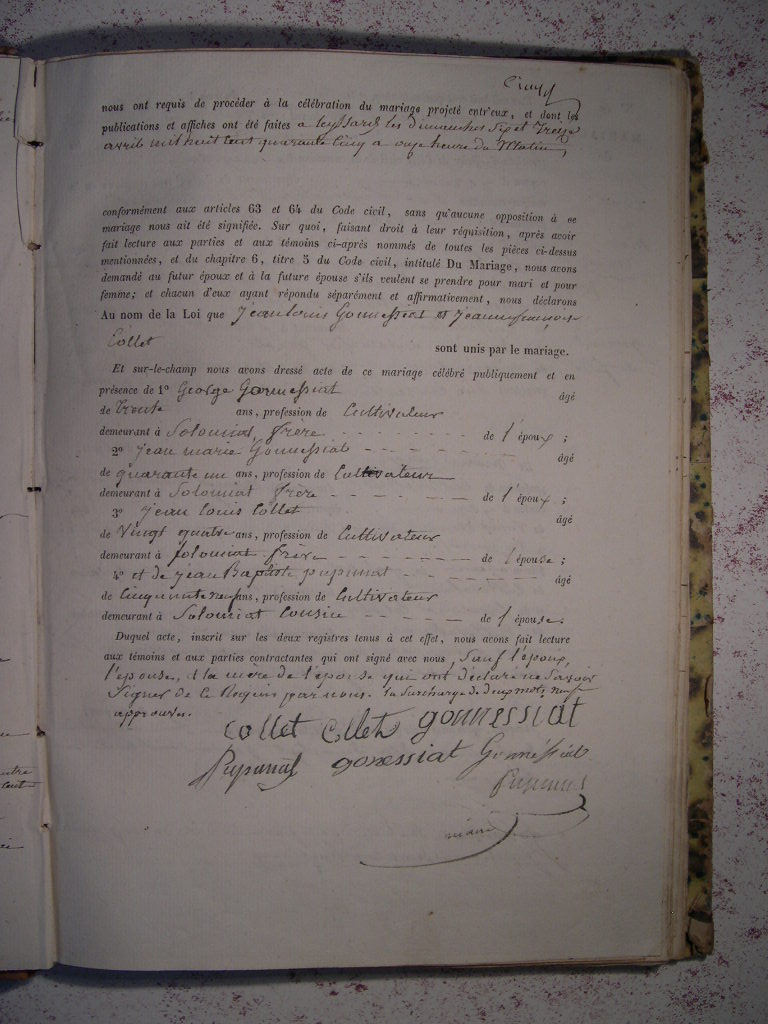 nous ont requis de procéder à la célébration du mariage projeté entr'eux, et dont les
publications et affiches ont été faites a leyssard les dimanches Six et Treize
avril mil huit cent quarante Cinq a onze heure du Matin,
conformément aux articles 63 et 64 du Code civil, sans qu'aucune opposition à ce
mariage nous ait été signifiée. Sur quoi, faisant droit à leur réquisition, après avoir
fait lecture aux parties et aux témoins ci-après nommés de toutes les pièces ci-dessus
mentionnées, et du chapitre 6, titre 5 du Code civil, intitulé Du Mariage, nous avons
demandé au futur époux et à la future épouse s'ils veulent se prendre pour mari et pour
femme; et chacun d'eux ayant répondu séparément et affirmativement, nous déclarons
Au nom de la Loi que Jean Louis Gonnessiat et Jeanne françoise
Collet
sont unis par le mariage.
Et sur-le-champ nous avons dressé acte de ce mariage célébré publiquement et en
présence de 1° George Gonnessiat âgé
de Trente ans, profession de Cultivateur
demeurant à Solomiat frère de l'époux;
2° jean marie Gonnessiat âgé
de quarante un ans, profession de Cultivateur
demeurant à Solomiat frère de l'époux;
3° jean Louis Collet âgé
de Vingt quatre ans, profession de Cultivateur
demeurant à Solomiat frère de l'épouse;
4° et de jean Baptiste pupunat âgé
de Cinquante neuf ans, profession de Cultivateur
demeurant à Solomiat Cousin de l'épouse.
Duquel acte, inscrit sur les deux registres tenus à cet effet, nous avons fait lecture
aux témoins et aux parties contractantes qui ont signé avec nous, Sauf l'époux,
l'epouse, et la mere de l'éponse qui ont déclaré ne Savoir
Signer de Ce Requis par nous. la Surcharge de deux mots neuf
approuvée.
Collet Collet gonnessiat
Pupunat gonessiat Gonnessiat
Pupunat
maire